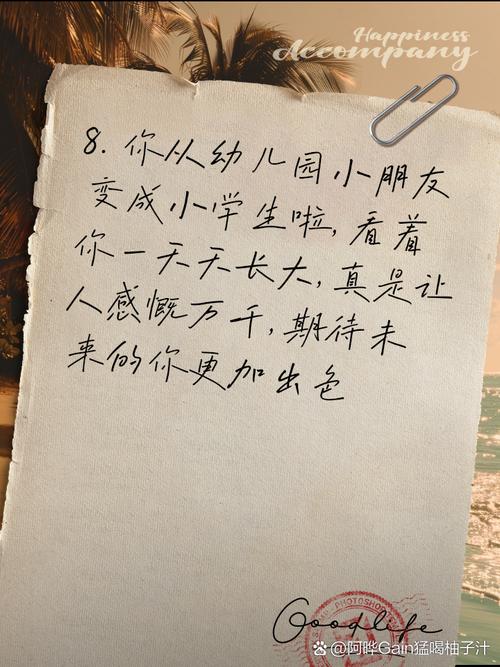 Happiness
Accompany
8. 你从幼儿园小朋友
变成小学生啦,看着
你一天天长大,真是让
人感慨万千,期待未
来的你更加出色
PHOTOSHOP
Goodlife
@阿晔Gain猛喝柚子汁